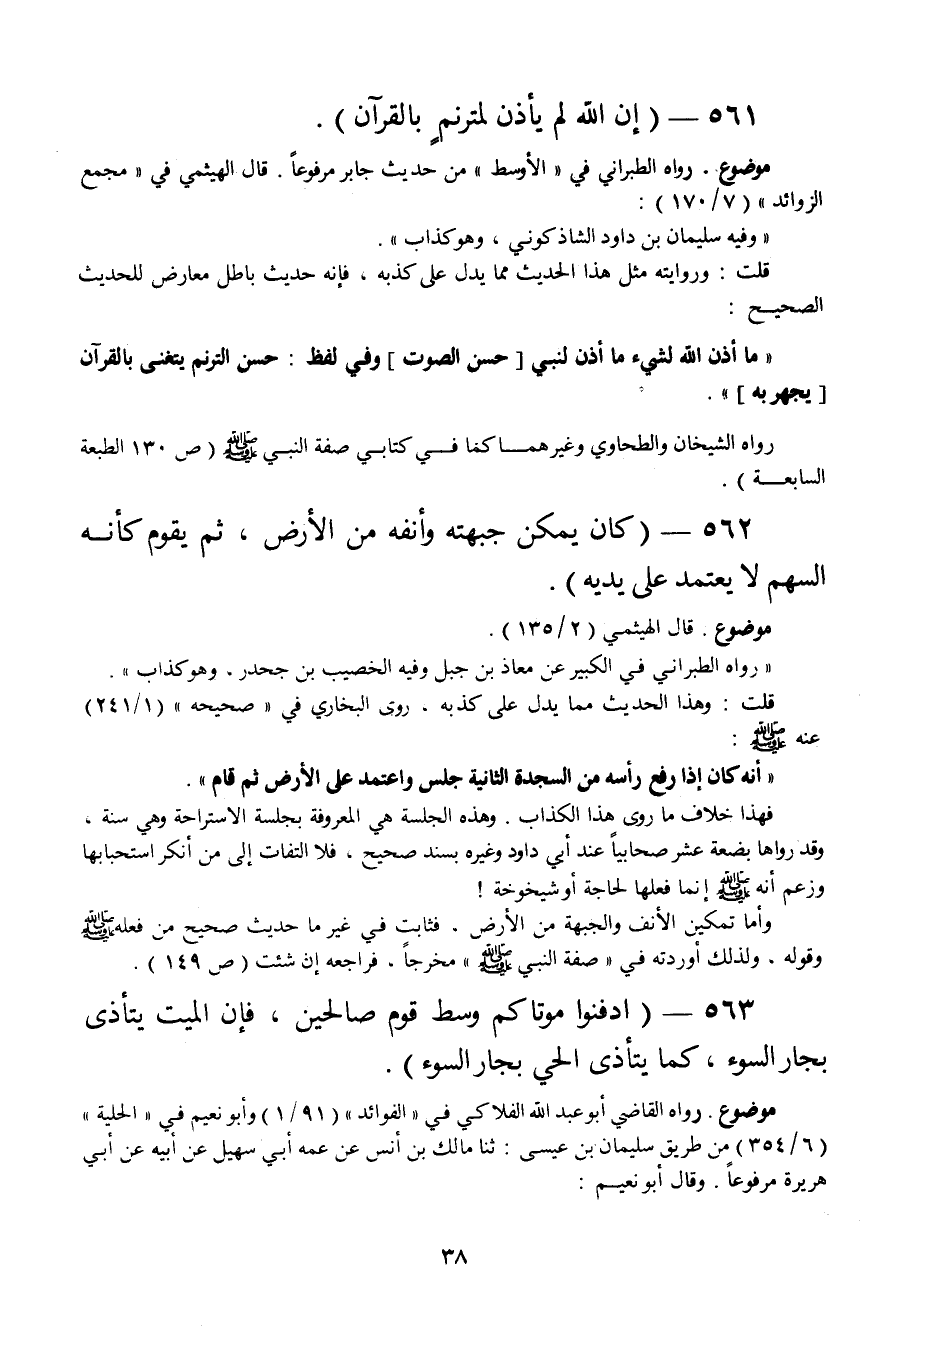 ٥٦١ — ( إن الله لم يأذن لمترنمٍ بالقرآن ) .
موضوع . رواه الطبراني في « الأوسط » من حديث جابر مرفوعاً . قال الهيثمي في « مجمع
الزوائد » ( ٧/ ١٧٠ ) :
« وفيه سليمان بن داود الشاذكوني ، وهو كذاب » .
قلت : وروايته مثل هذا الحديث مما يدل على كذبه ، فإنه حديث باطل معارض للحديث
الصحيح :
« ما أذن الله لشيء ما أذن لنبي [ حسن الصوت ] وفي لفظ : حسن الترنم يتغنى بالقرآن
[ يجهر به ] » .
رواه الشيخان والطحاوي وغيرهما كما في كتابي صفة النبي ﷺ ( ص ١٣٠ الطبعة
السابعة ) .
٥٦٢ — ( كان يمكن جبهته وأنفه من الأرض ، ثم يقوم كأنه
السهم لا يعتمد على يديه ) .
موضوع . قال الهيثمي ( ٢/ ١٣٥ ) .
« رواه الطبراني في الكبير عن معاذ بن جبل وفيه الخصيب بن جحدر . وهو كذاب » .
قلت : وهذا الحديث مما يدل على كذبه . روى البخاري في « صحيحه » (١/ ٢٤١)
عنه ﷺ :
« أنه كان إذا رفع رأسه من السجدة الثانية جلس واعتمد على الأرض ثم قام » .
فهذا خلاف ما روى هذا الكذاب . وهذه الجلسة هي المعروفة بجلسة الاستراحة وهي سنة ،
وقد رواها بضعة عشر صحابياً عند أبي داود وغيره بسند صحيح ، فلا التفات إلى من أنكر استحبابها
وزعم أنه ﷺ إنما فعلها لحاجة أو شيخوخة !
وأما تمكين الأنف والجبهة من الأرض . فثابت في غير ما حديث صحيح من فعله ﷺ
وقوله . ولذلك أوردته في « صفة النبي ﷺ » مخرجاً . فراجعه إن شئت ( ص ١٤٩ ) .
٥٦٣ — ( ادفنوا موتاكم وسط قوم صالحين ، فإن الميت يتأذى
بجار السوء ، كما يتأذى الحي بجار السوء ) .
موضوع . رواه القاضي أبو عبد الله الفلاكي في « الفوائد » ( ٩١/ ١ ) وأبو نعيم في « الحلية »
( ٦/ ٣٥٤) من طريق سليمان بن عيسى : ثنا مالك بن أنس عن عمه أبي سهيل عن أبيه عن أبي
هريرة مرفوعاً . وقال أبو نعيم :
٣٨